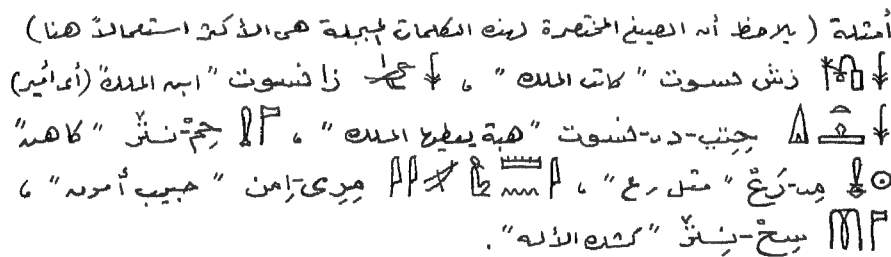 أمثلة ( يلاحظ أن الصيغ المختصرة لهذه الكلمات المبجلة هى الأكثر استعمالاً هنا )
زش نسوت " كاتب الملك " ، زا نسوت " ابن الملك " (أى أمير)
حتب-دى-نسوت " هبة يعطيها الملك " ، حم-نتر " كاهن "
مى-رع " مثل رع " ، مرى-إمن " حبيب أمون " ،
سح-نتر " الأله " .